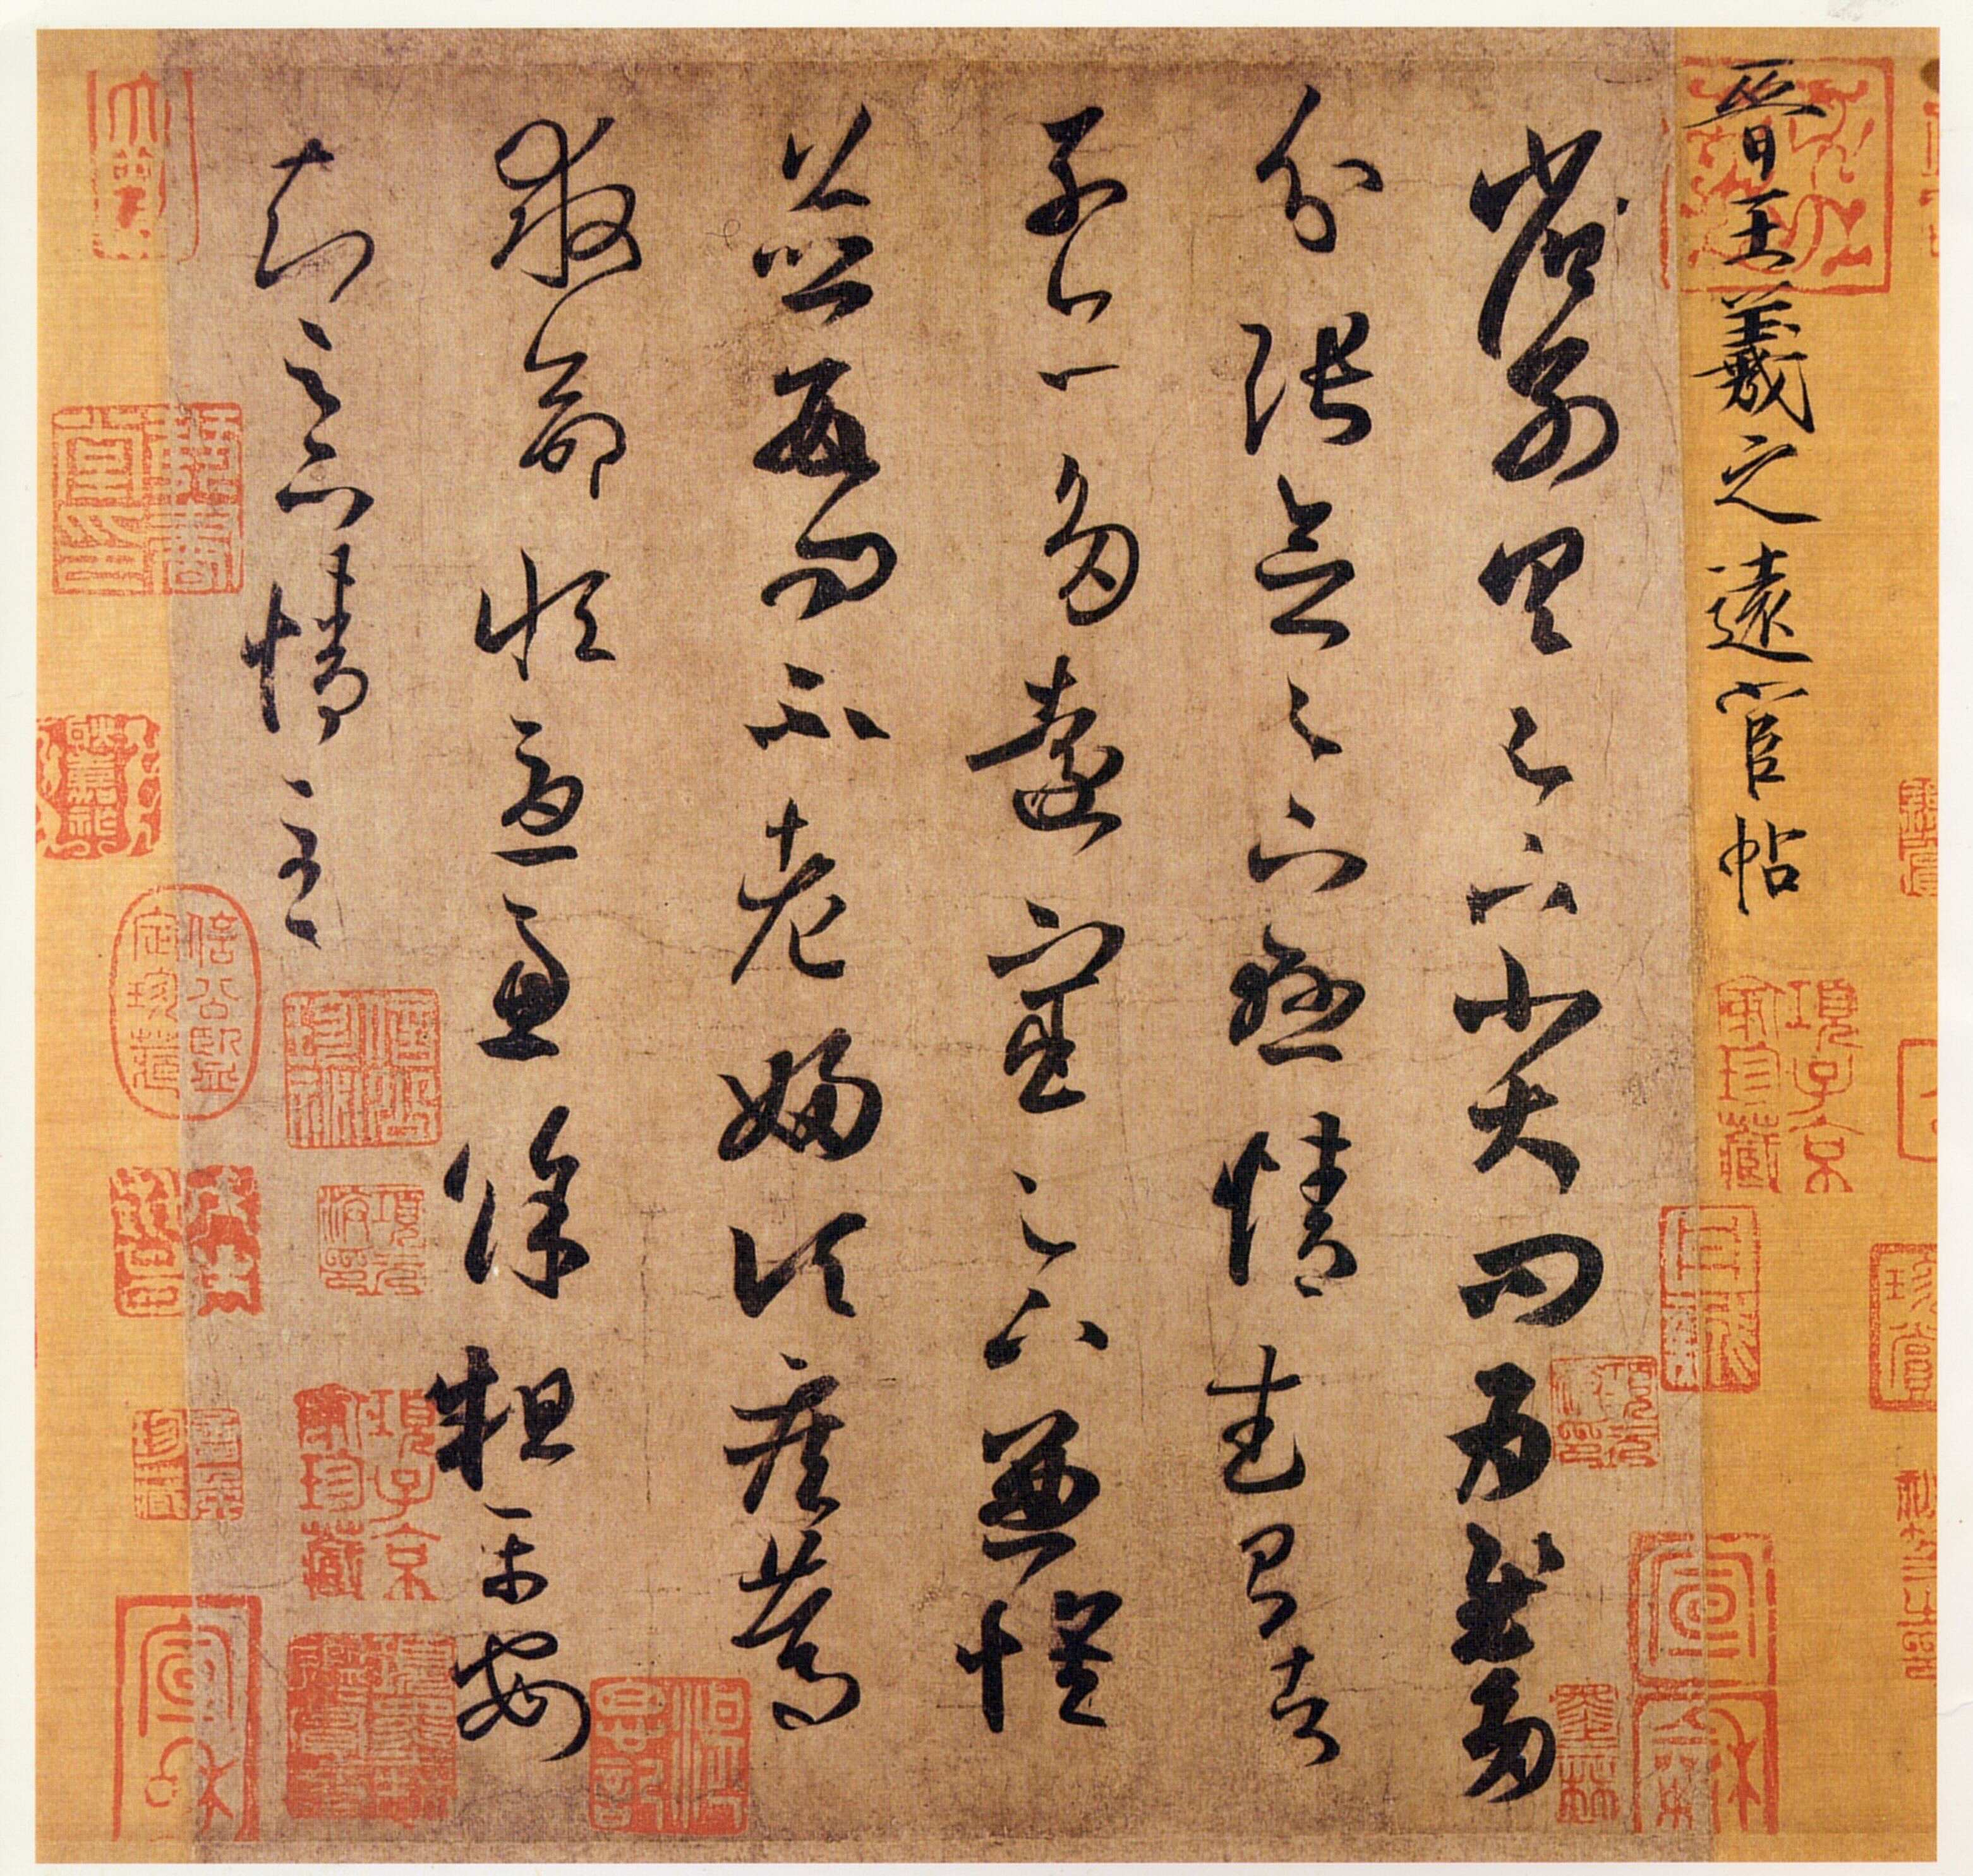 晉王羲之遠宦帖
省別具足下小大問為慰多
分張念足下懸情武昌諸
子亦多遠宦足下兼懷
並數問不老婦頃疾篤
救命恒憂慮餘粗平安
知足下情至
項子京家珍藏
項元汴印
墨林
宣龢
大觀
信公鑒定珍藏
項元汴印
項子京家珍藏